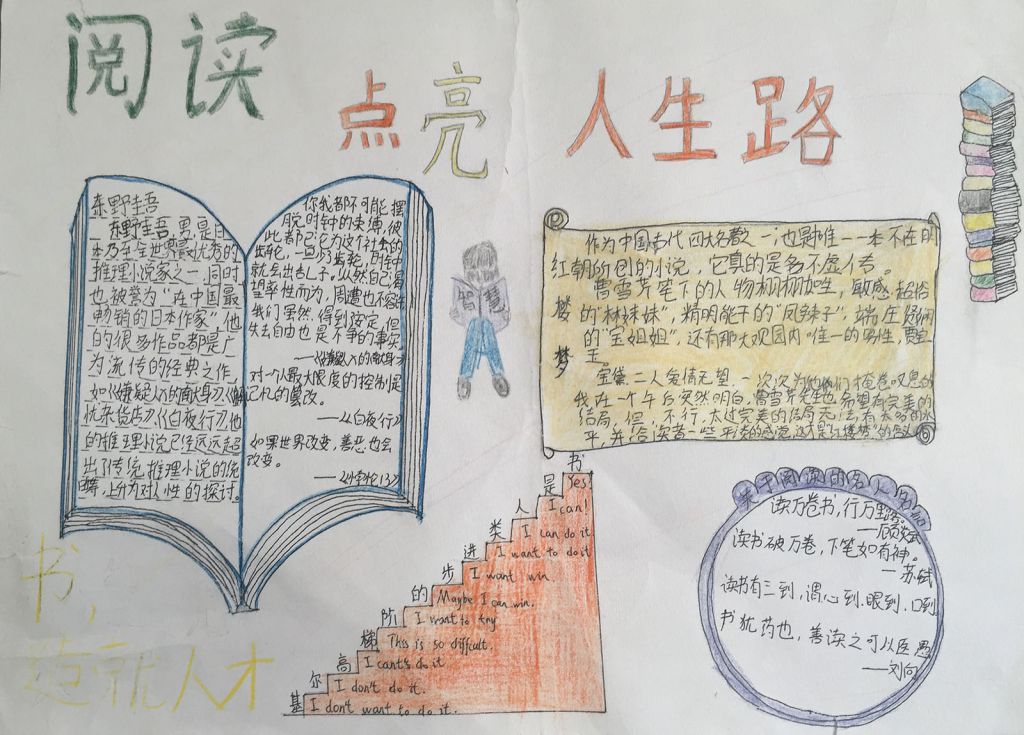 阅读
点亮
人生路
东野圭吾
东野圭吾,男,是日
本乃至全世界最优秀的
推理小说家之一,同时
也被誉为“在中国最
畅销的日本作家”,他
的很多作品都是广
为流传的经典之作,
如《嫌疑人的献身》《解
忧杂货店》《白夜行》,他
的推理小说已经远远超
出了传统推理小说的范
畴,上升为对人性的探讨。
你我都不可能摆
脱时钟的束缚,彼
此都已沦为这个社会的
齿轮,一旦少了齿轮,时钟
就会出乱子,纵然自己渴
望率性而为,周遭也不容许
我们虽然得到安定,但
失去自由也是不争的事实。
——《嫌疑人的献身》
对个人最大限度的控制是
记忆的篡改。
——《白夜行》
如果世界改变,善恶也会
改变。
智慧
作为中国古代四大名著之一,也是唯一一本不在明
红朝所创的小说,它真的是名不虚传。
曹雪芹笔下的人物栩栩如生,敏感超俗
楼的“林妹妹”,精明能干的“凤辣子”,端庄娴
的“宝姐姐”,还有那大观园内唯一的男性,贾宝
玉。
梦
宝黛二人爱情无望,一次次为他们掩卷叹息的
我在一个午后突然明白,曹雪芹先生也希望有完美的
结局,但,不行,太过完美的结局无法有
书
是
人
类
进
步
的
阶
梯
高
尔
基
Yes
I can!
I can do it
I want to do it
I want win.
Maybe I can win.
I want to try
This is so difficult.
I can't do it
I don't do it.
I don't want to do it.
关于阅读的名人名言
读万卷书,行万里路
读书破万卷,下笔如有神。
—苏轼
读书有三到,谓心到.眼到.口到.
书犹药也,善读之可以医愚
——刘向
书,
造就人才